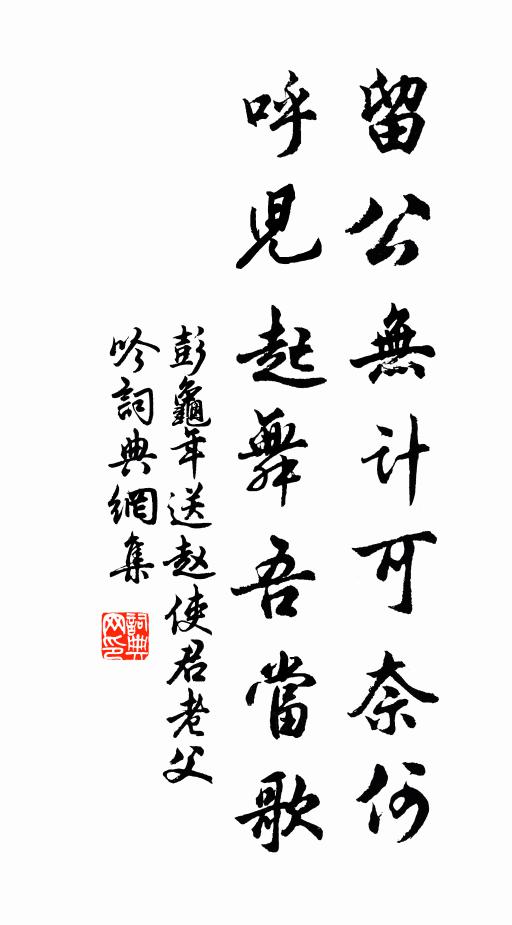 留公無计可奈何
呼児起舞吾當歌
彭龜年送赵使君老父
吟詞典網集
詞典网印